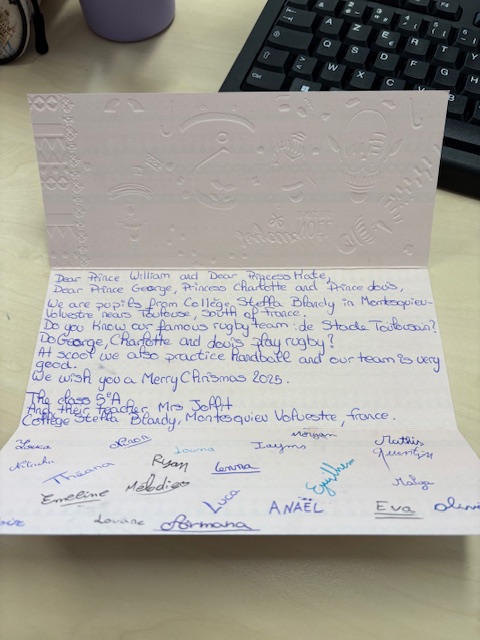 Dear Prince William and Dear Princess Kate,
Dear Prince George, Princess Charlotte and Prince Louis,
We are pupils from Collège Stella Blandy in Montesquieu-
Volvestre nears Toulouse, south of France.
Do you know our famous rugby team : de Stade Toulousain?
Do George, Charlotte and Louis play rugby?
At scool we also practice handball and our team is very
good.
We wish you a Merry Christmas 2025.
The class 5eA
And their teacher, Mrs
Collège Stella Blandy, Montesquieu Volvestre, France.
Morgan Mathis
Louna Quentin
Ryan Lenna
Théana
Emeline Mélodies Luca
ANAËL Eva
Louane Armana